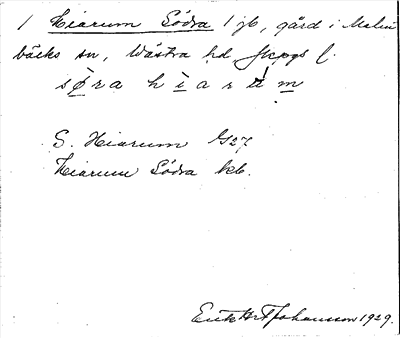 1 Hiarum Södra 1 jb, gård i Malm
bäcks sn, Västra hd, Jkpgs l.
søra hìarɯm
S. Hiarum G27
Hiarum Södra kb.
Erik Johansson 1929.